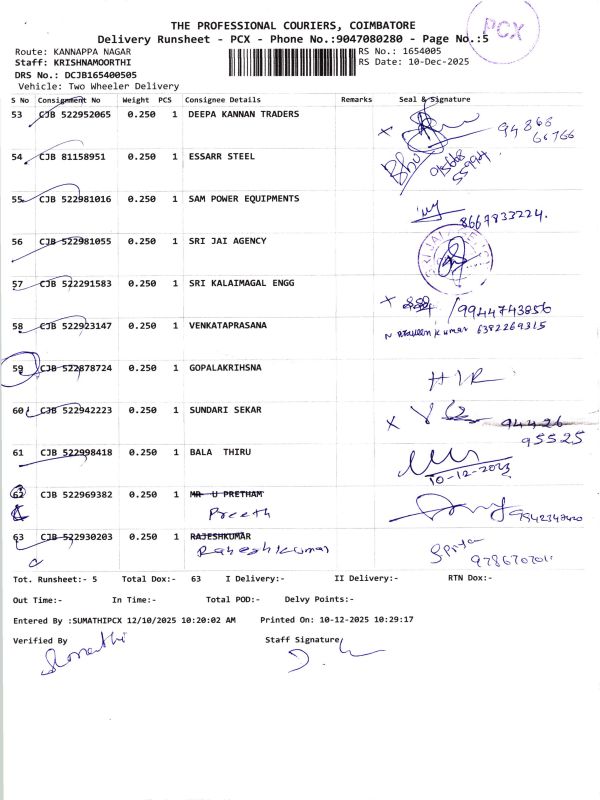 THE PROFESSIONAL COURIERS, COIMBATORE
PCX
Delivery Runsheet - PCX - Phone No.:9047080280 - Page No.:5
Route: KANNAPPA NAGAR RS No.: 1654005
Staff: KRISHNAMOORTHI RS Date: 10-Dec-2025
DRS No.: DCJB165400505
Vehicle: Two Wheeler Delivery
S No Consignment No Weight PCS Consignee Details Remarks Seal & Signature
53 CJB 522952065 0.250 1 DEEPA KANNAN TRADERS
X 94868
66766
54 CJB 81158951 0.250 1 ESSARR STEEL
55 CJB 522981016 0.250 1 SAM POWER EQUIPMENTS
8667833224.
56 CJB 522981055 0.250 1 SRI JAI AGENCY
SRI JAI
57 CJB 522291583 0.250 1 SRI KALAIMAGAL ENGG
X 9944743856
58 CJB 522923147 0.250 1 VENKATAPRASANA
N Praveen kumar 6382269315
59 CJB 522878724 0.250 1 GOPALAKRIHSNA
60 CJB 522942223 0.250 1 SUNDARI SEKAR
X 94426
95525
61 CJB 522998418 0.250 1 BALA THIRU
10-12-2023
62 CJB 522969382 0.250 1 MR U PRETHAM
Preeth
63 CJB 522930203 0.250 1 RAJESHKUMAR
Rakesh kumar
Tot. Runsheet:- 5 Total Dox:- 63 I Delivery:- II Delivery:- RTN Dox:-
Out Time:- In Time:- Total POD:- Delvy Points:-
Entered By :SUMATHIPCX 12/10/2025 10:20:02 AM Printed On: 10-12-2025 10:29:17
Verified By Staff Signature
Sumathi